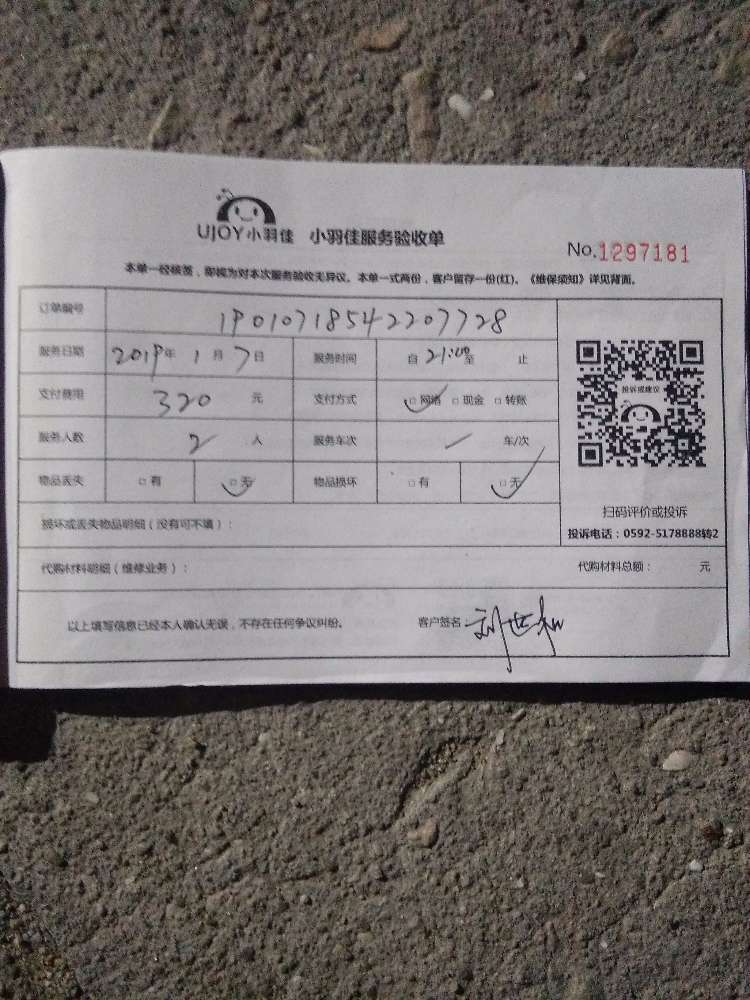 UJOY小羽佳 小羽佳服务验收单
No.1297181
本单一经核签，即视为对本次服务验收无异议。本单一式两份，客户留存一份(红)。《维保须知》详见背面。
订单编号 19010718542207728
服务日期 2019年 1月 7日 服务时间 自 21:00 至 止
支付费用 320 元 支付方式 □网络 □现金 □转账
服务人数 2 人 服务车次 车/次
物品丢失 □有 □无 物品损坏 □有 □无
投诉或建议
扫码评价或投诉
投诉电话：0592-5178888转2
损坏或丢失物品明细（没有可不填）：
代购材料明细（维修业务）： 代购材料总额： 元
以上填写信息已经本人确认无误，不存在任何争议纠纷。 客户签名